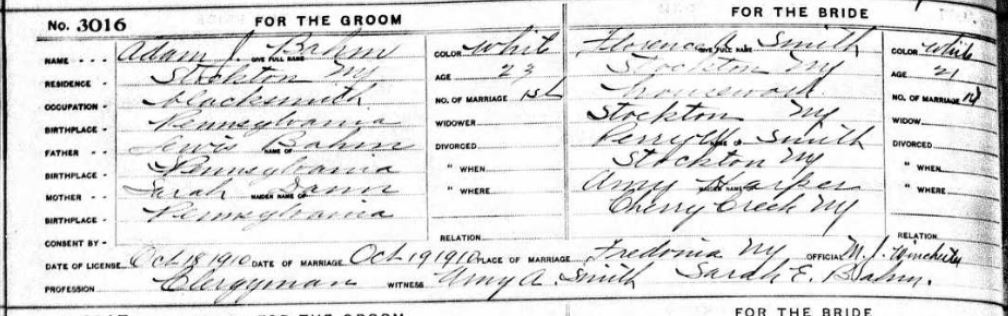 No. 3016 FOR THE GROOM FOR THE BRIDE
NAME Adam J. Bahm GIVE FULL NAME COLOR White Florence A. Smith GIVE FULL NAME COLOR White
RESIDENCE Stockton Ny AGE 23 Stockton Ny AGE 21
OCCUPATION blacksmith NO. OF MARRIAGE 1st housework NO. OF MARRIAGE 1st
BIRTHPLACE Pennsylvania WIDOWER Stockton Ny WIDOW
FATHER Lewis Bahm NAME OF DIVORCED Perry M. Smith NAME OF DIVORCED
BIRTHPLACE Pennsylvania " WHEN Stockton Ny " WHEN
MOTHER Sarah MAIDEN NAME OF " WHERE Amy Harper MAIDEN NAME OF " WHERE
BIRTHPLACE Pennsylvania Cherry Creek Ny
CONSENT BY RELATION RELATION
DATE OF LICENSE Oct 18 1910 DATE OF MARRIAGE Oct 19 1910 PLACE OF MARRIAGE Fredonia Ny OFFICIAL M. J. Winchester
PROFESSION Clergyman WITNESS Amy A. Smith Sarah E. Bahm.
FOR THE GROOM FOR THE BRIDE